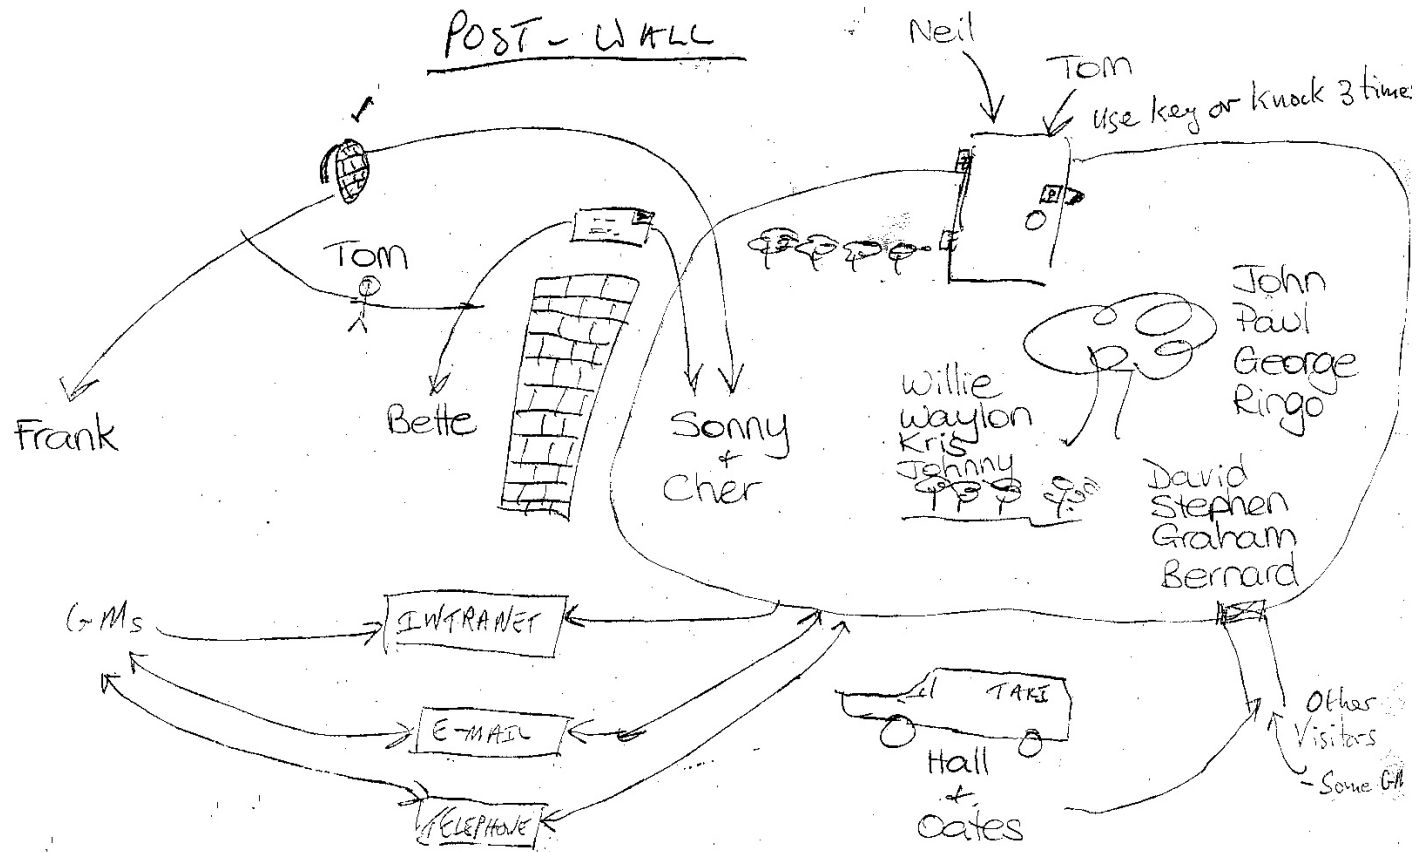 POST - WALL
Neil
Tom
use key or knock 3 times
Tom
John
Paul
George
Ringo
Frank
Bette
Sonny
+
Cher
Willie
Waylon
Kris
Johnny
David
Stephen
Graham
Bernard
GMs
INTRANET
E-MAIL
TELEPHONE
TAXI
Hall
+
Oates
Other
Visitors
- Some GM